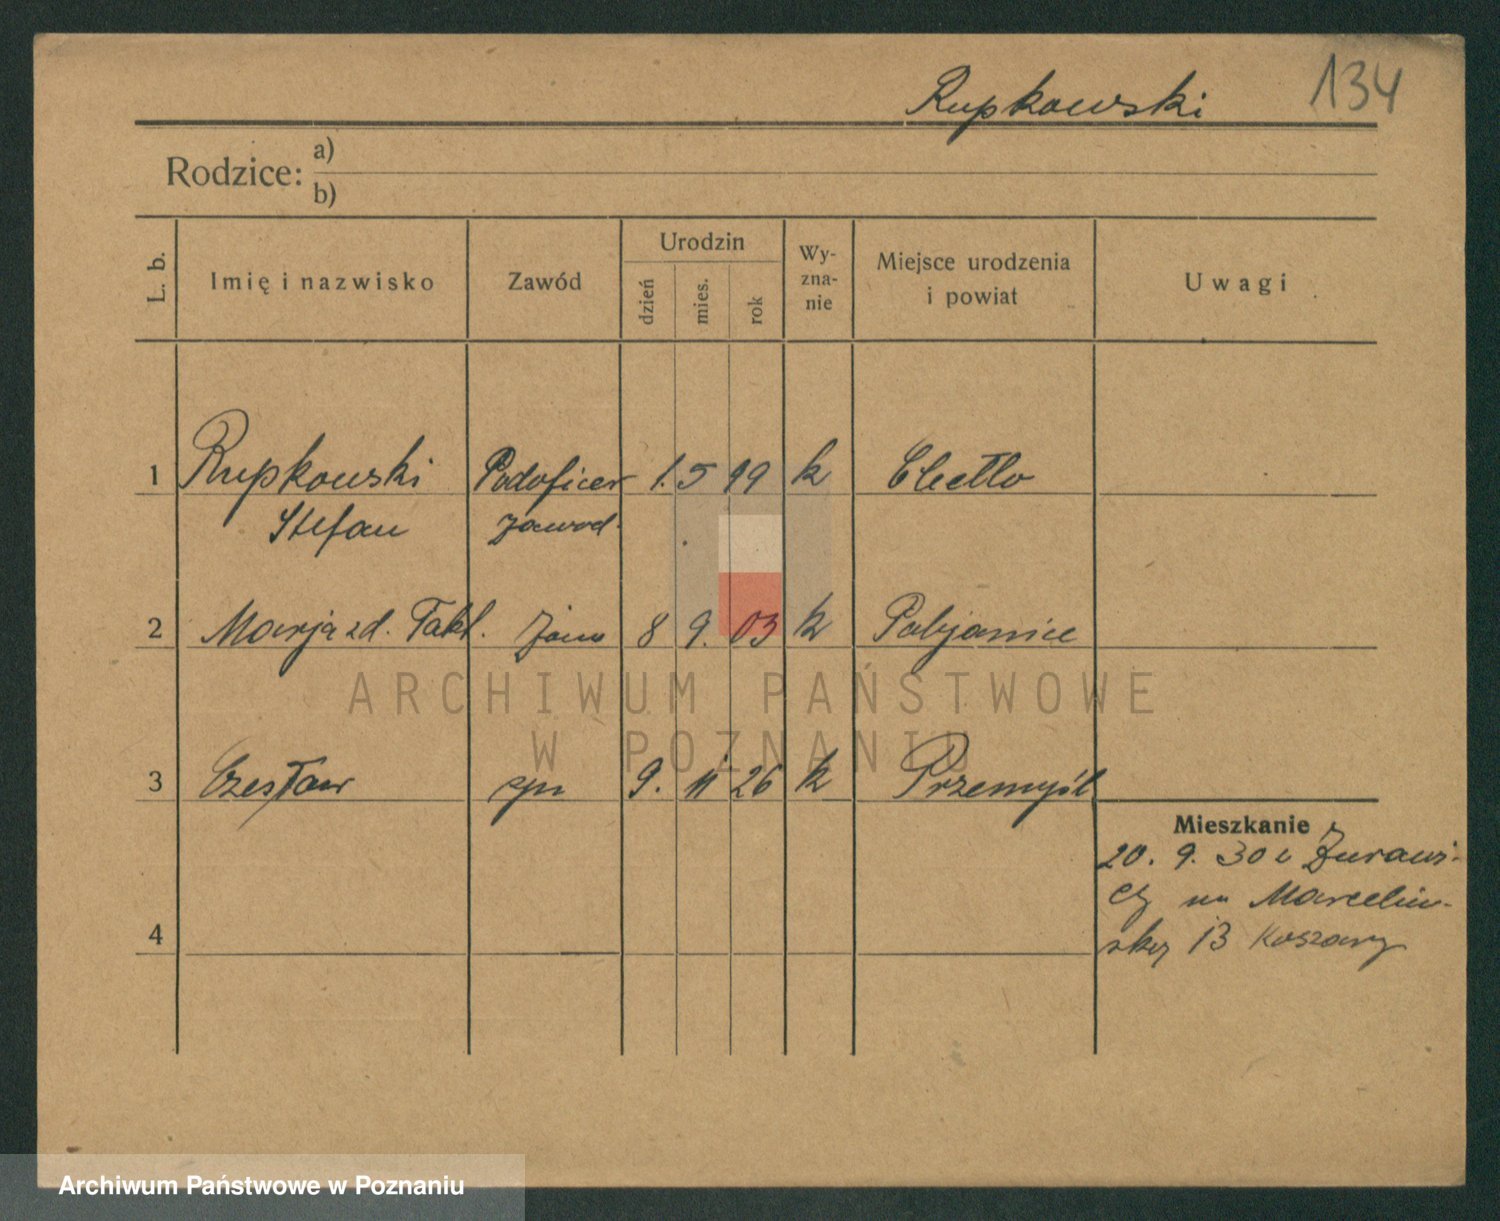 134
Rupkowski
Rodzice:
a)
b)
L. b.
Imię i nazwisko
Zawód
Urodzin
dzień
mies.
rok
Wy-
zna-
nie
Miejsce urodzenia
i powiat
Uwagi
1 Rupkowski Podoficer 1. 5 99 k
Stefan zawod.
2 Marja zd. Takl. żona 8 9. 03 k Pabjanice
3 Czesław syn 9. 11 26 k Przemyśl
Mieszkanie
20. 9. 30 z Żurawi-
cy na Marceliń-
ską 13 Koszary
4
ARCHIWUM PAŃSTWOWE
W POZNANIU
Archiwum Państwowe w Poznaniu